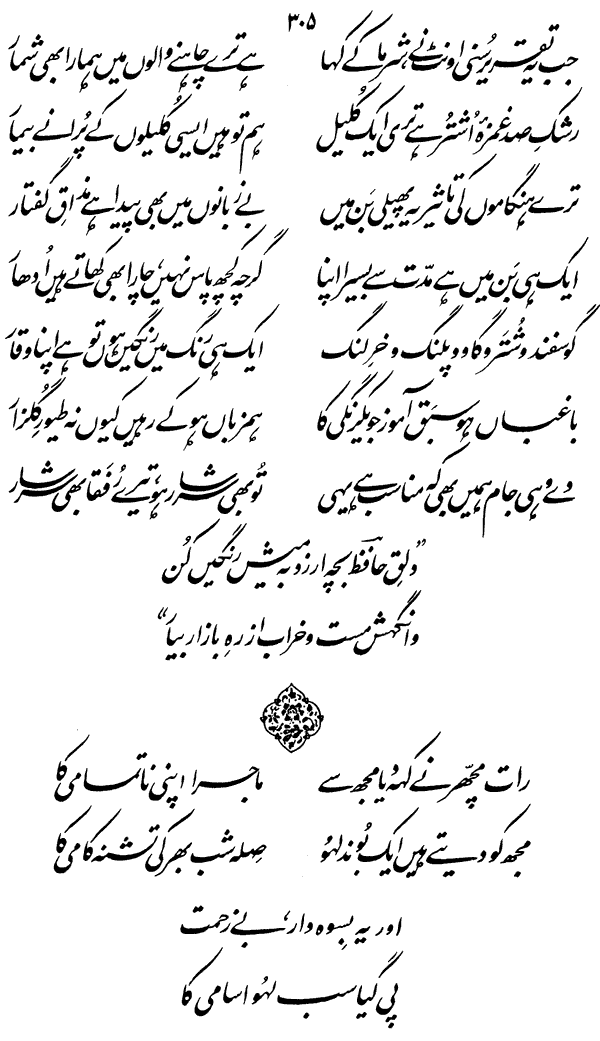 ۳۰۵
جب یہ تقریر سُنی اونٹ نے شرما کے کہا ہے ترے چاہنے والوں میں ہمارا بھی شمار
رشکِ صد غمزۂ اُشتر ہے تری ایک کُلیل ہم تو ہیں ایسی کُلیلوں کے پُرانے بیمار
ترے ہنگاموں کی تاثیر یہ پھیلی بَن میں بے زبانوں میں بھی پیدا ہے مذاقِ گفتار
ایک ہی بَن میں ہے مدّت سے بسیرا اپنا گرچہ کچھ پاس نہیں، چارا بھی کھاتے ہیں اُدھار
گوسفند و شُتر و گاو و پلنگ و خرِ لنگ ایک ہی رنگ میں رنگیں ہوں تو ہے اپنا وقار
باغباں ہو سبَق آموز جو یکرنگی کا ہمزباں ہو کے رہیں کیوں نہ طیورِ گلزار
دے وہی جام ہمیں بھی کہ مناسب ہے یہی تُو بھی سرشار ہو، تیرے رُفَقا بھی سرشار
”دلقِ حافظؔ بچہ ارزد بہ میَش رنگیں کُن
وانگہش مست و خراب از رہِ بازار بیار“
رات مچھّر نے کہہ دیا مجھ سے ماجرا اپنی ناتمامی کا
مجھ کو دیتے ہیں ایک بُوند لہُو صِلہ شب بھر کی تشنہ کامی کا
اور یہ بِسوہ دار، بے زحمت
پی گیا سب لہُو اسامی کا